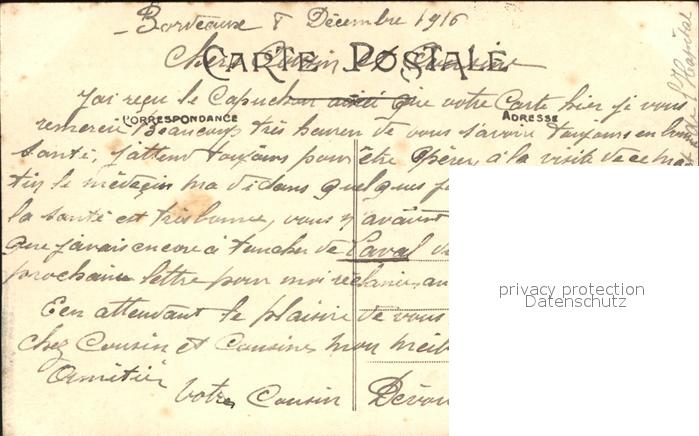 Bordeaux 8 Décembre 1916
Chers Cousin et Cousine
CARTE POSTALE
J'ai reçu le Capuchon que votre Carte hier je vous
CORRESPONDANCE
ADRESSE
remercie Beaucoup très heureu de vous savoire toujours en bonne
santé, j'attend toujours pour être Opérer, à la visite de ce ma
tin le médeçin ma di dans quelques
la santé est très bonne, vous n'avaient
que j'avais encore à toucher de Laval
prochaine lettre pour moi
Een attendant le plaisire de vous
chez Cousin et Cousines mon meil
Amitiér
Votre Cousin
l'Hopital
privacy protection
Datenschutz